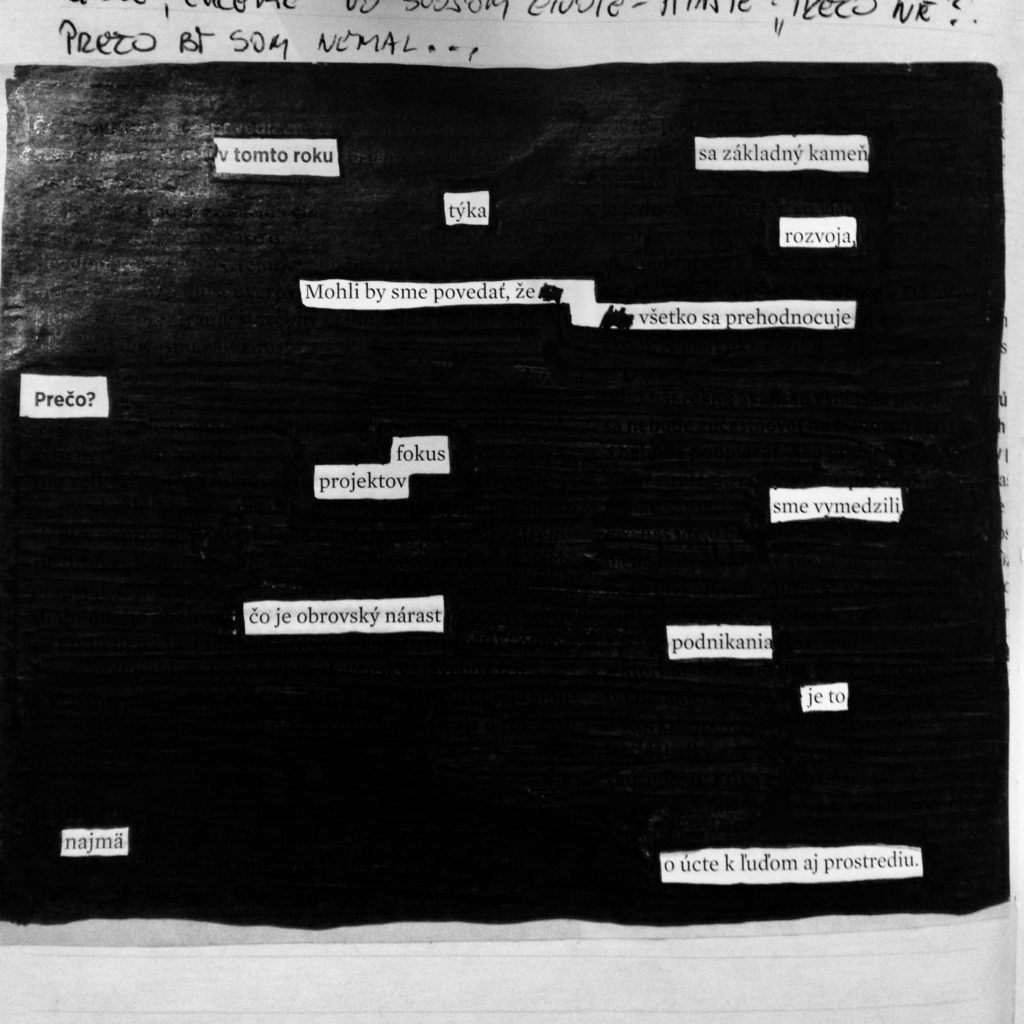 PREČO BY SOM NEMAL...,
v tomto roku
sa základný kameň
týka
rozvoja,
Mohli by sme povedať, že
všetko sa prehodnocuje
Prečo?
fokus
projektov
sme vymedzili
čo je obrovský nárast
podnikania
je to
najmä
o úcte k ľuďom aj prostrediu.